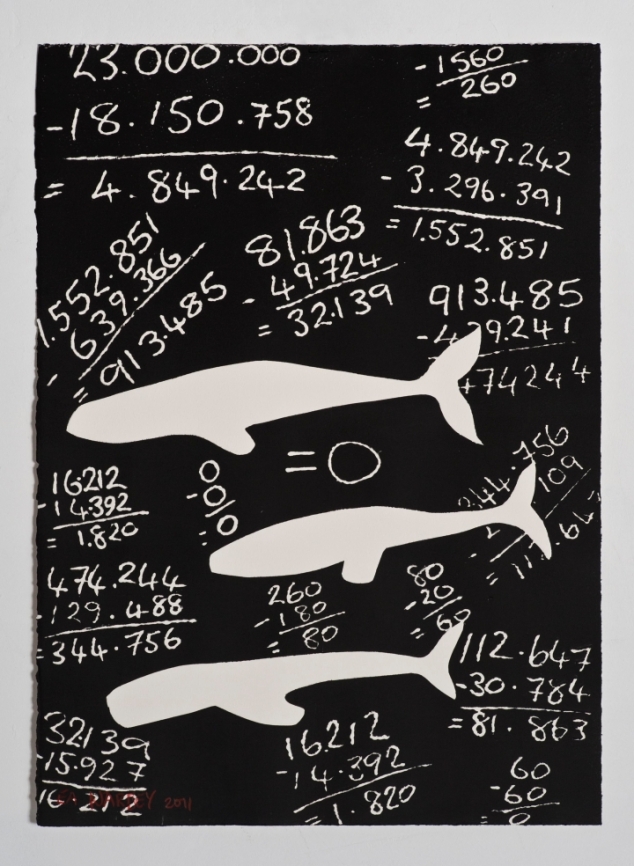 23.000.000
-18.150.758
= 4.849.242
-1560
= 260
4.849.242
- 3.296.391
= 1.552.851
1.552.851
- 639.366
= 913.485
81.863
- 49.724
= 32.139
913.485
474244
= 0
16.212
14.392
= 1.820
0
-0
= 0
474.244
129.488
=344.756
260
- 180
= 80
80
-20
= 60
344.756
109
112.647
-30.784
=81.863
32139
15.927
16.212
16.212
-14.392
= 1.820
60
-60
= 0
2011